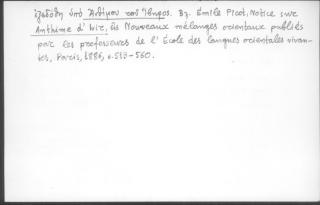 ἐξεδόθη ὑπὸ Ἀνθίμου τοῦ Ἴβηρος. Βλ. Émile Picot, Notice sur
Anthime d'Ivir, εἰς Nouveaux mélanges orientaux publiés
par les professeurs de l'École des langues orientales vivan-
tes, Paris, 1886, σ. 513-560.